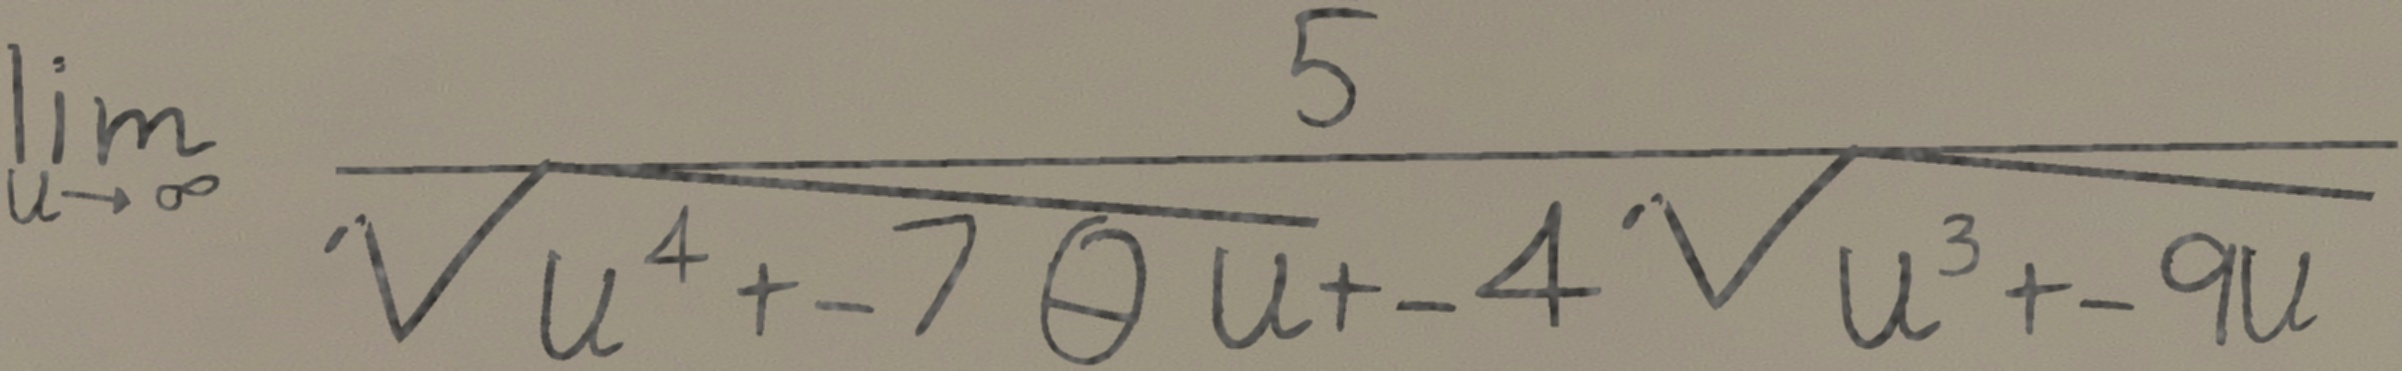 \lim_{u \to \infty} \frac{5}{\sqrt{u^4 + -7 \theta u} + -4 \sqrt{u^3 + -9u}}